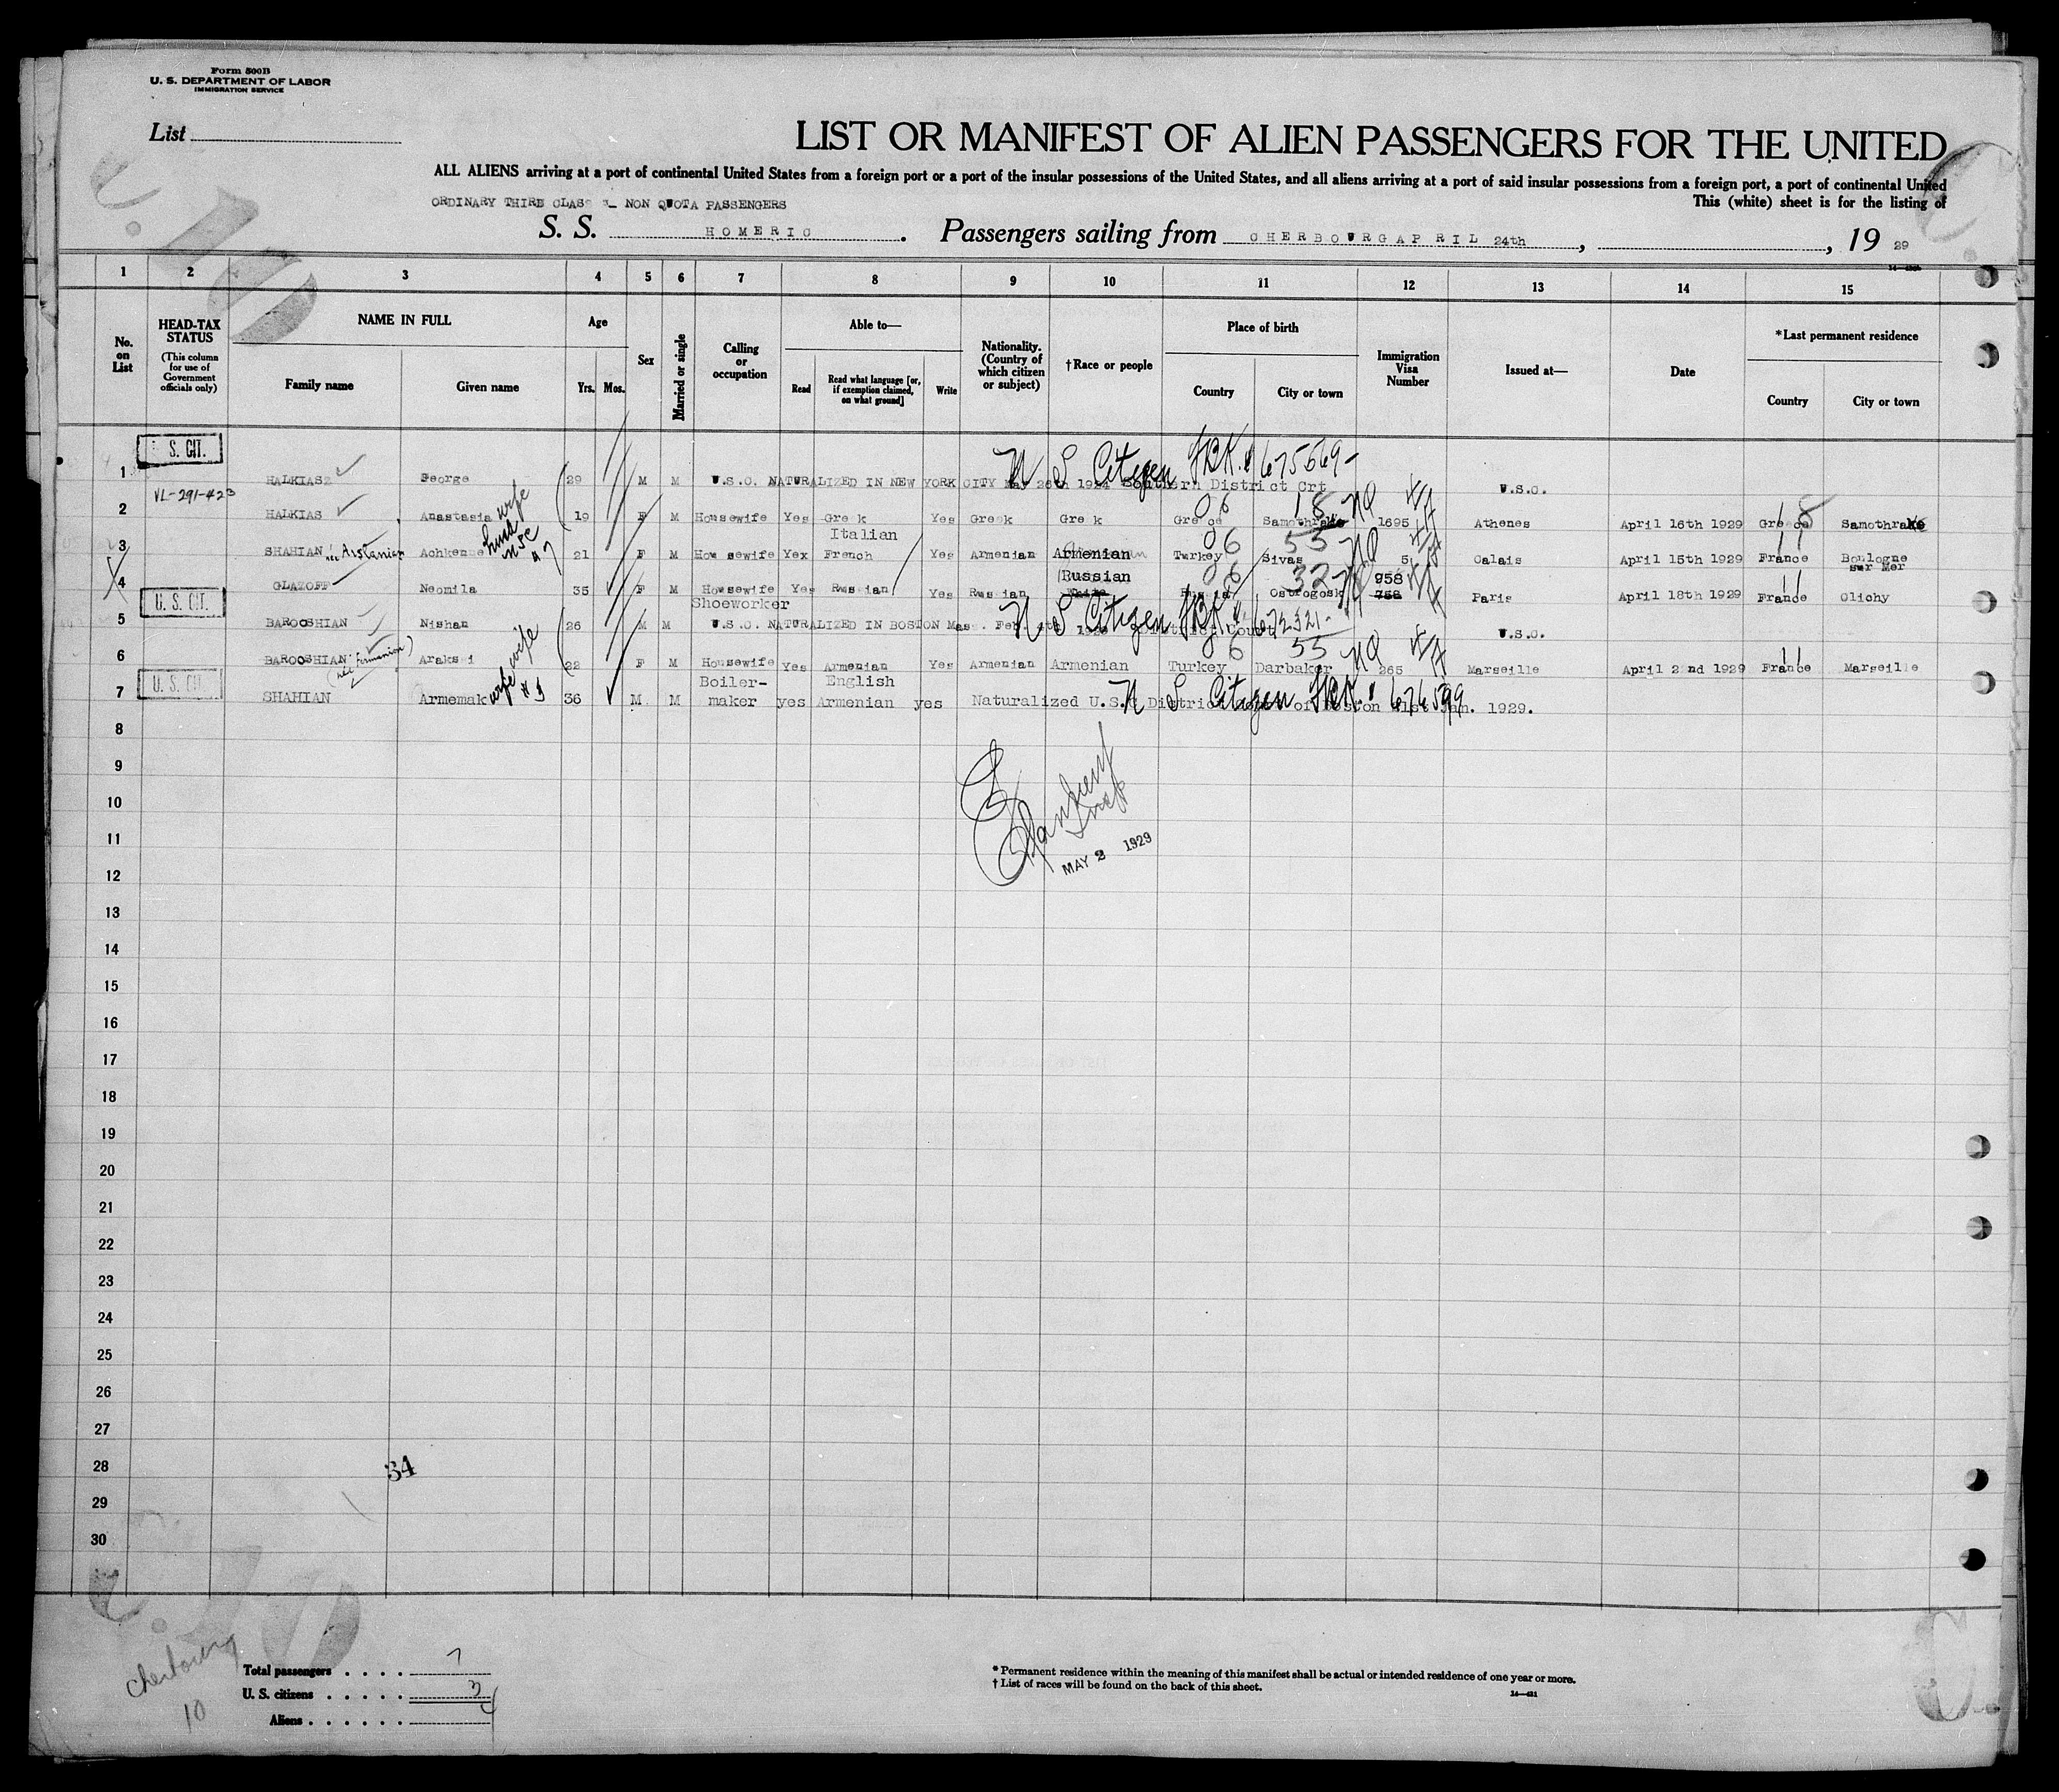 Form 500B
U. S. DEPARTMENT OF LABOR
IMMIGRATION SERVICE
List
LIST OR MANIFEST OF ALIEN PASSENGERS FOR THE UNITED
ALL ALIENS arriving at a port of continental United States from a foreign port or a port of the insular possessions of the United States, and all aliens arriving at a port of said insular possessions from a foreign port, a port of continental United
This (white) sheet is for the listing of
ORDINARY THIRD CLASS NON QUOTA PASSENGERS
S. S. HOMERIC. Passengers sailing from CHERBOURG APRIL 24th, , 19 29
1 2 3 4 5 6 7 8 9 10 11 12 13 14 15
No. on List
HEAD-TAX STATUS
(This column for use of Government officials only)
NAME IN FULL
Family name
Given name
Age
Yrs. Mos.
Sex
Married or single
Calling or occupation
Able to—
Read
Read what language [or, if exemption claimed, on what ground]
Write
Nationality. (Country of which citizen or subject)
†Race or people
Place of birth
Country
City or town
Immigration Visa Number
Issued at—
Date
*Last permanent residence
Country
City or town
S. CIT.
1 HALKIAS George 29 M M U.S.C. NATURALIZED IN NEW YORK CITY May 26th 1924 Southern District Crt U.S.C.
U S Citizen 675669-
VL-291-423
2 HALKIAS Anastasia wife 19 F M Housewife Yes Gre k Yes Greek Gre k Greece Samothrake 1695 Athenes April 16th 1929 Greece Samothrake
06 18 NQ
Italian
3 SHAHIAN née Achkenne husb #7 21 F M Housewife Yex French Yes Armenian Armenian Turkey Sivas 5 Calais April 15th 1929 France Boulogne sur Mer
06 55 NQ
Russian 958
4 GLAZOFF Neomila 35 F M Housewife Yes Russian Yes Russian White Russia Ostrogosk 758 Paris April 18th 1929 France Clichy
06 32 NQ
U. S. CIT.
Shoeworker
5 BAROOSHIAN Nishan 26 M M U.S.C. NATURALIZED IN BOSTON Mass. Feb. U.S.C.
U S Citizen 672321-
6 BAROOSHIAN Araksi wife 22 F M Housewife Yes Armenian Yes Armenian Armenian Turkey Darbaker 265 Marseille April 22nd 1929 France Marseille
6 55 NQ
U. S. CIT.
Boiler- English
7 SHAHIAN Armemak wife #3 36 M M maker yes Armenian yes Naturalized U.S.C District of Boston Jan. 1929.
U S Citizen
8
9
10
11
12
13
14
15
16
17
18
19
20
21
22
23
24
25
26
27
28
29
30
Insp
MAY 2 1929
34
Cherbourg
10
Total passengers . . . . 7
U. S. citizens . . . . . 3
Aliens . . . . . . 4
* Permanent residence within the meaning of this manifest shall be actual or intended residence of one year or more.
† List of races will be found on the back of this sheet.